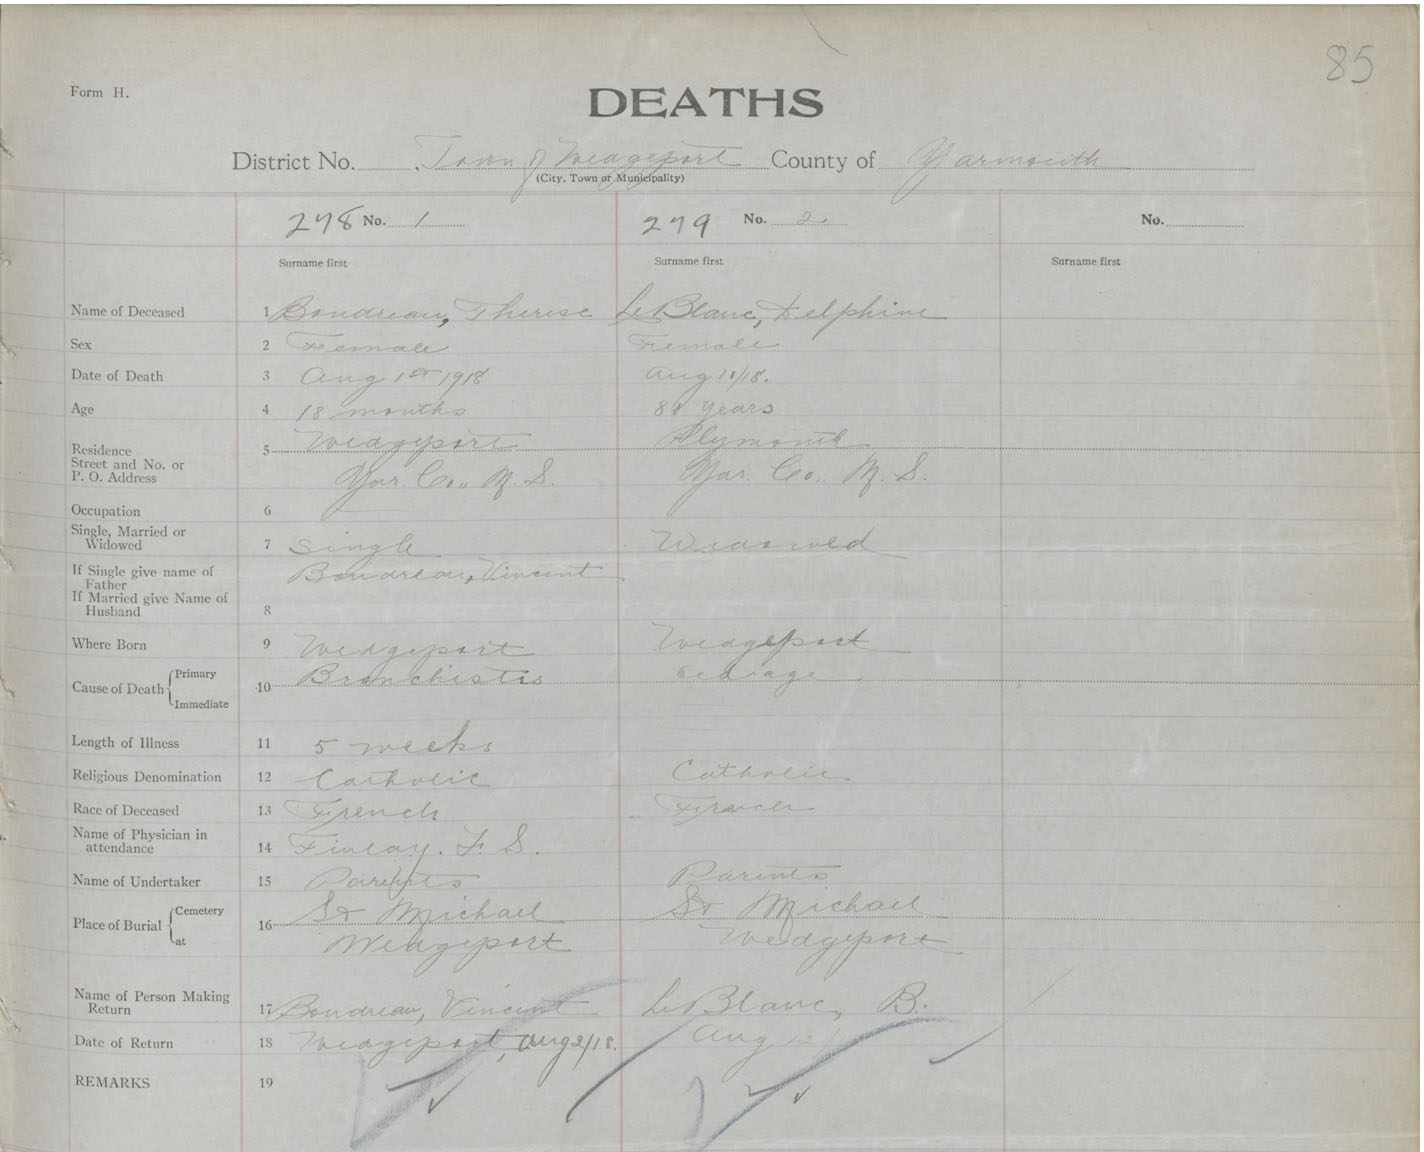 85
Form H.
DEATHS
District No. Town of Wedgeport County of Yarmouth
(City, Town or Municipality)
278 No. 1 279 No. 2 No.
Surname first Surname first Surname first
Name of Deceased 1 Boudreau, Therese LeBlanc, Delphine
Sex 2 Female Female
Date of Death 3 Aug 1st 1918 Aug 11/18.
Age 4 18 months 80 years
Residence 5 Wedgeport Plymouth
Street and No. or
P. O. Address Yar. Co., N. S. Yar. Co., N. S.
Occupation 6
Single, Married or
Widowed 7 Single Widowed
If Single give name of Boudreau, Vincent
Father
If Married give Name of
Husband 8
Where Born 9 Wedgeport Wedgeport
Primary Bronchistis old age
Cause of Death 10
Immediate
Length of Illness 11 5 weeks
Religious Denomination 12 Catholic Catholic
Race of Deceased 13 French French
Name of Physician in
attendance 14 Finlay. F. S.
Name of Undertaker 15 Parents Parents
Cemetery St Michael St Michael
Place of Burial 16
at Wedgeport Wedgeport
Name of Person Making
Return 17 Boudreau, Vincent LeBlanc, B.
Date of Return 18 Wedgeport, Aug 2/18. Aug
REMARKS 19